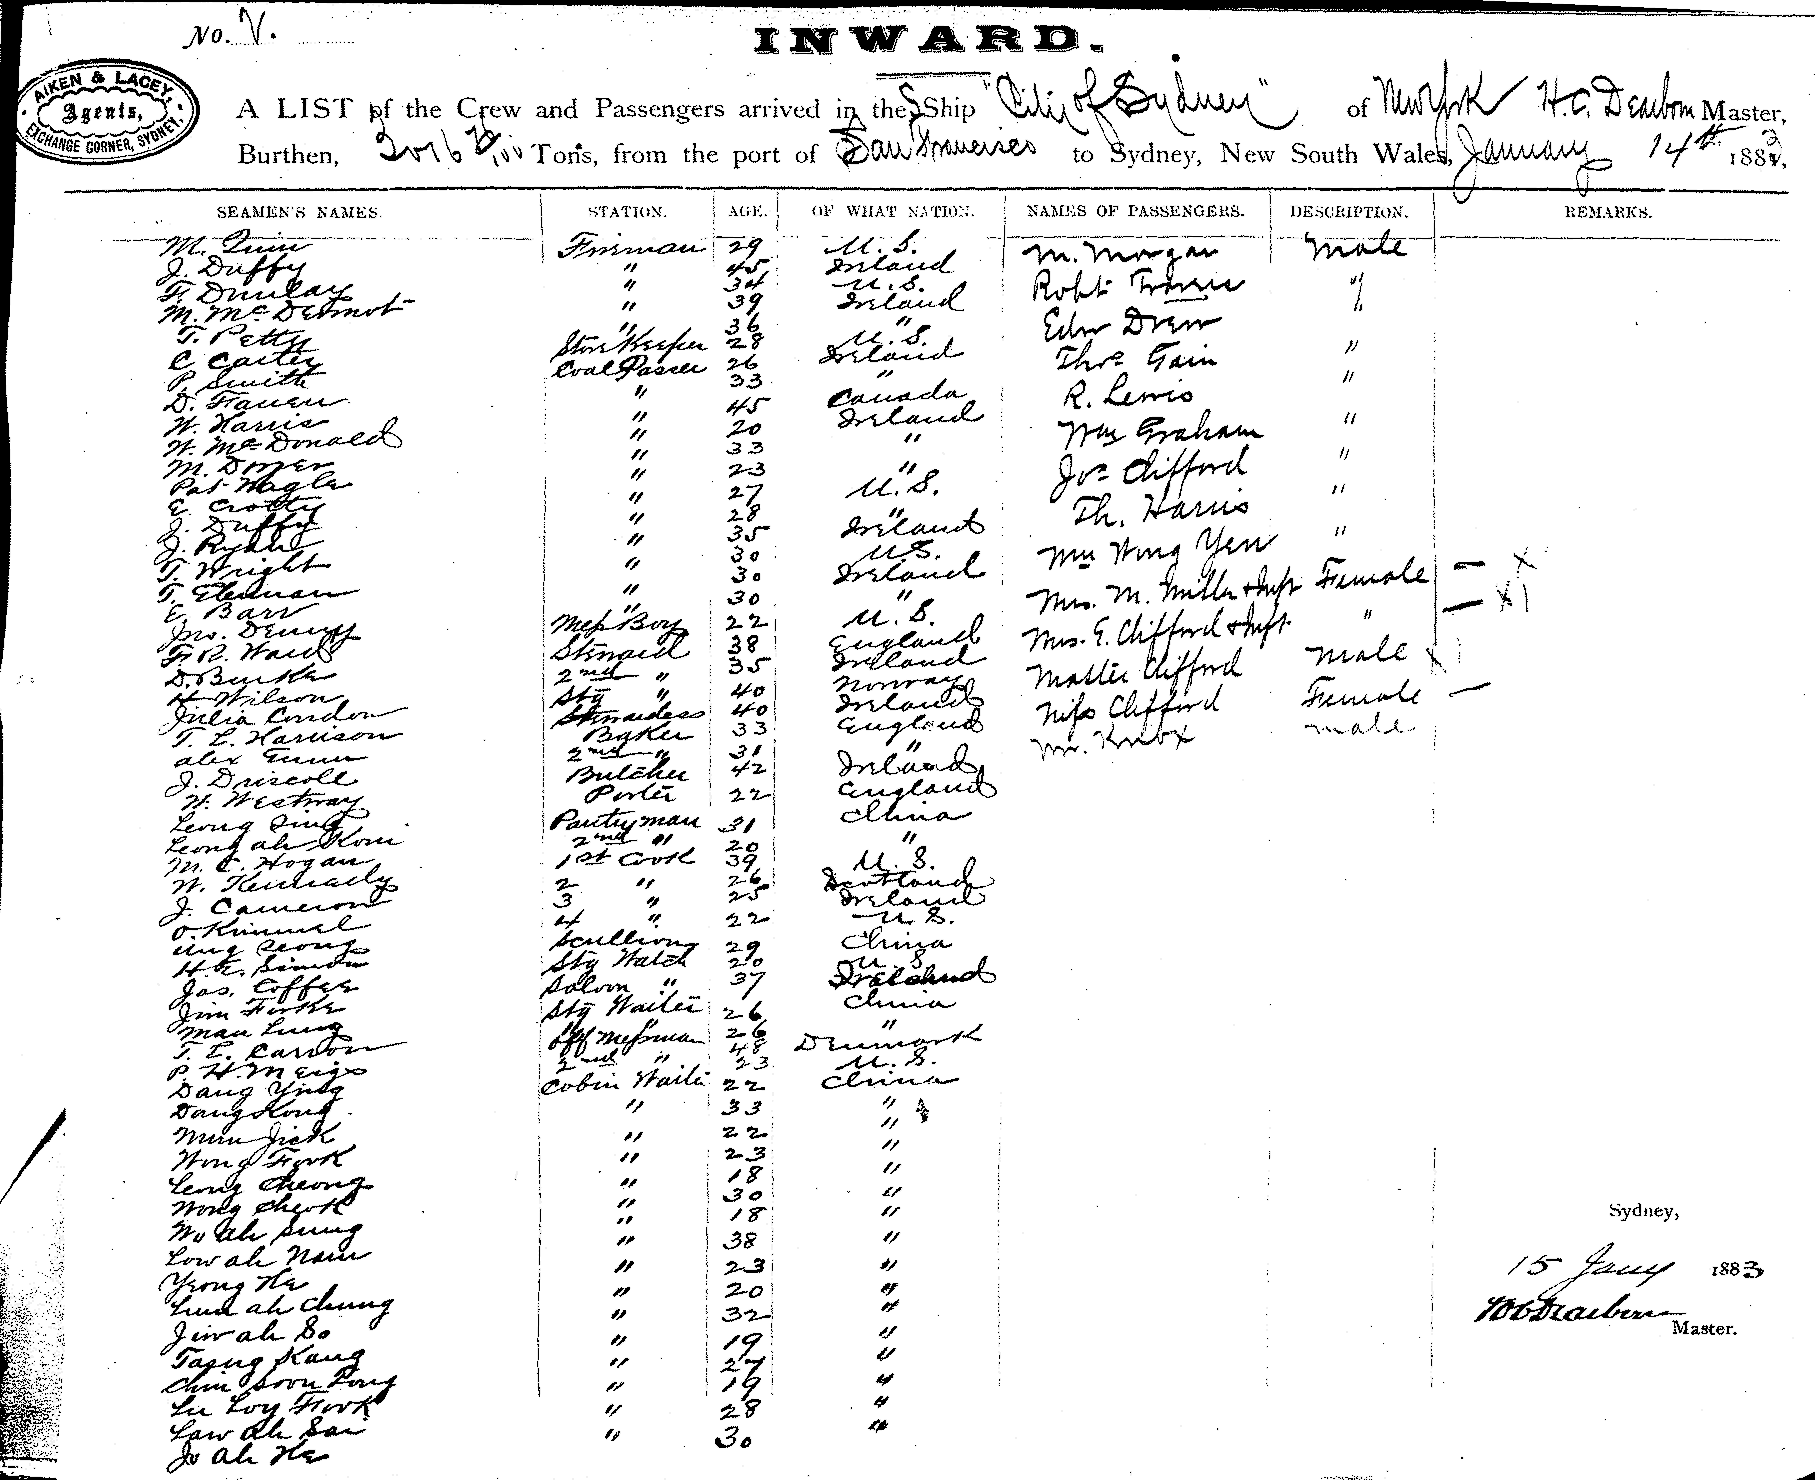 No. V.
INWARD.
AIKEN & LACEY,
Agents,
EXCHANGE CORNER, SYDNEY.
A LIST of the Crew and Passengers arrived in the S Ship "City of Sydney" of New York H.C. Dearborn Master,
Burthen, Tons, from the port of San Francisco to Sydney, New South Wales, January 14th 1883,
SEAMEN'S NAMES. STATION. AGE. OF WHAT NATION. NAMES OF PASSENGERS. DESCRIPTION. REMARKS.
M. Quin Fireman 29 U.S. M. Morgan Male
J. Duffy " 45 Ireland
F. Dunlay " 34 U.S. Robt Francis "
M. McDermot " 39 Ireland
T. Petty " 36 " Edw Drew
C Carter Store Keeper 28 U.S.
P. Smith Coal Passer 26 Ireland Thos Gain "
D. " 33 " R. Lewis "
W. Harris " 45 Canada
W. McDonald " 20 Ireland Wm Graham "
M. " 33 "
Pat Nagle " 23 " Jos Clifford "
E. Crotty " 27 U.S.
J. Duffy " 28 " Th. Harris "
J. Ryan " 35 Ireland
T. Wright " 30 U.S. Wong Yen "
T. " 30 Ireland
E. Barr " 30 " Mrs. M. Miller & Inft Female — X
Jno. Denny Mess Boy 22 U.S.
F.R. Ward Steward 38 England Mrs. E. Clifford & Inft " — X
D. Burke 2nd " 35 Ireland
H Wilson Stg " 40 Norway Master Clifford Male X
Julia Condon Stewardess 40 Ireland Miss Clifford Female —
T. L. Harrison Baker 33 England Mr. Knox male
Alex Gunn 2nd " 31 "
J. Driscoll Butcher 42 Ireland
W. Westway Porter 22 England
Leong Sing Pantryman 31 China
Leong ah Kom 2nd " 20 "
M. C. Hogan 1st Cook 39 U.S.
W. Kennedy 2 " 26 Scotland
J. Cameron 3 " 25 Ireland
O. Kimmel 4 " 22 U.S.
Ung Seong Scullion 29 China
H.E. Simon Stg Watch 20 U.S.
Jas. Coffee Saloon " 37 Ireland
Jim Stg Waiter 26 China
Man Lung " 26 "
T. L. Off Messman 48 Denmark
P. H. Meigs 2nd " 23 U.S.
Dang Ying Cabin Waiter 22 China
Dang Hong " 33 "
Mun Jick " 22 "
Wong Fook " 23 "
Leong Cheong " 18 "
Wong Cheok " 30 "
Wo ah Sung " 18 "
Low ah Nam " 38 "
Yeong He " 23 "
Lum ah Chung " 20 "
Jew ah So " 32 "
Kang " 19 "
Chin Soon Pong " 27 "
Lee Loy Fook " 19 "
Law ah Sai " 28 "
Jo Ah He " 30 "
Sydney,
15 Jany 1883
H C Dearborn
Master.